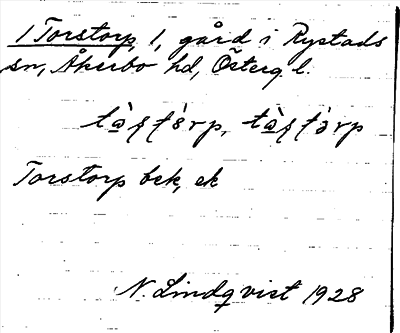 1 Torstorp, 1, gård i Rystads
sn, Åkerbo hd, Österg. l.
Torstorp bck, ek
N. Lindqvist 1928